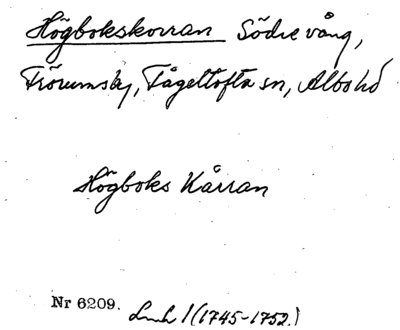 Högbokskorran Södre vång,
Frörumsby, Fågeltofta sn, Albo hd
Högboks Kårran
Nr 6209. Lmh 1 (1745-1752.)